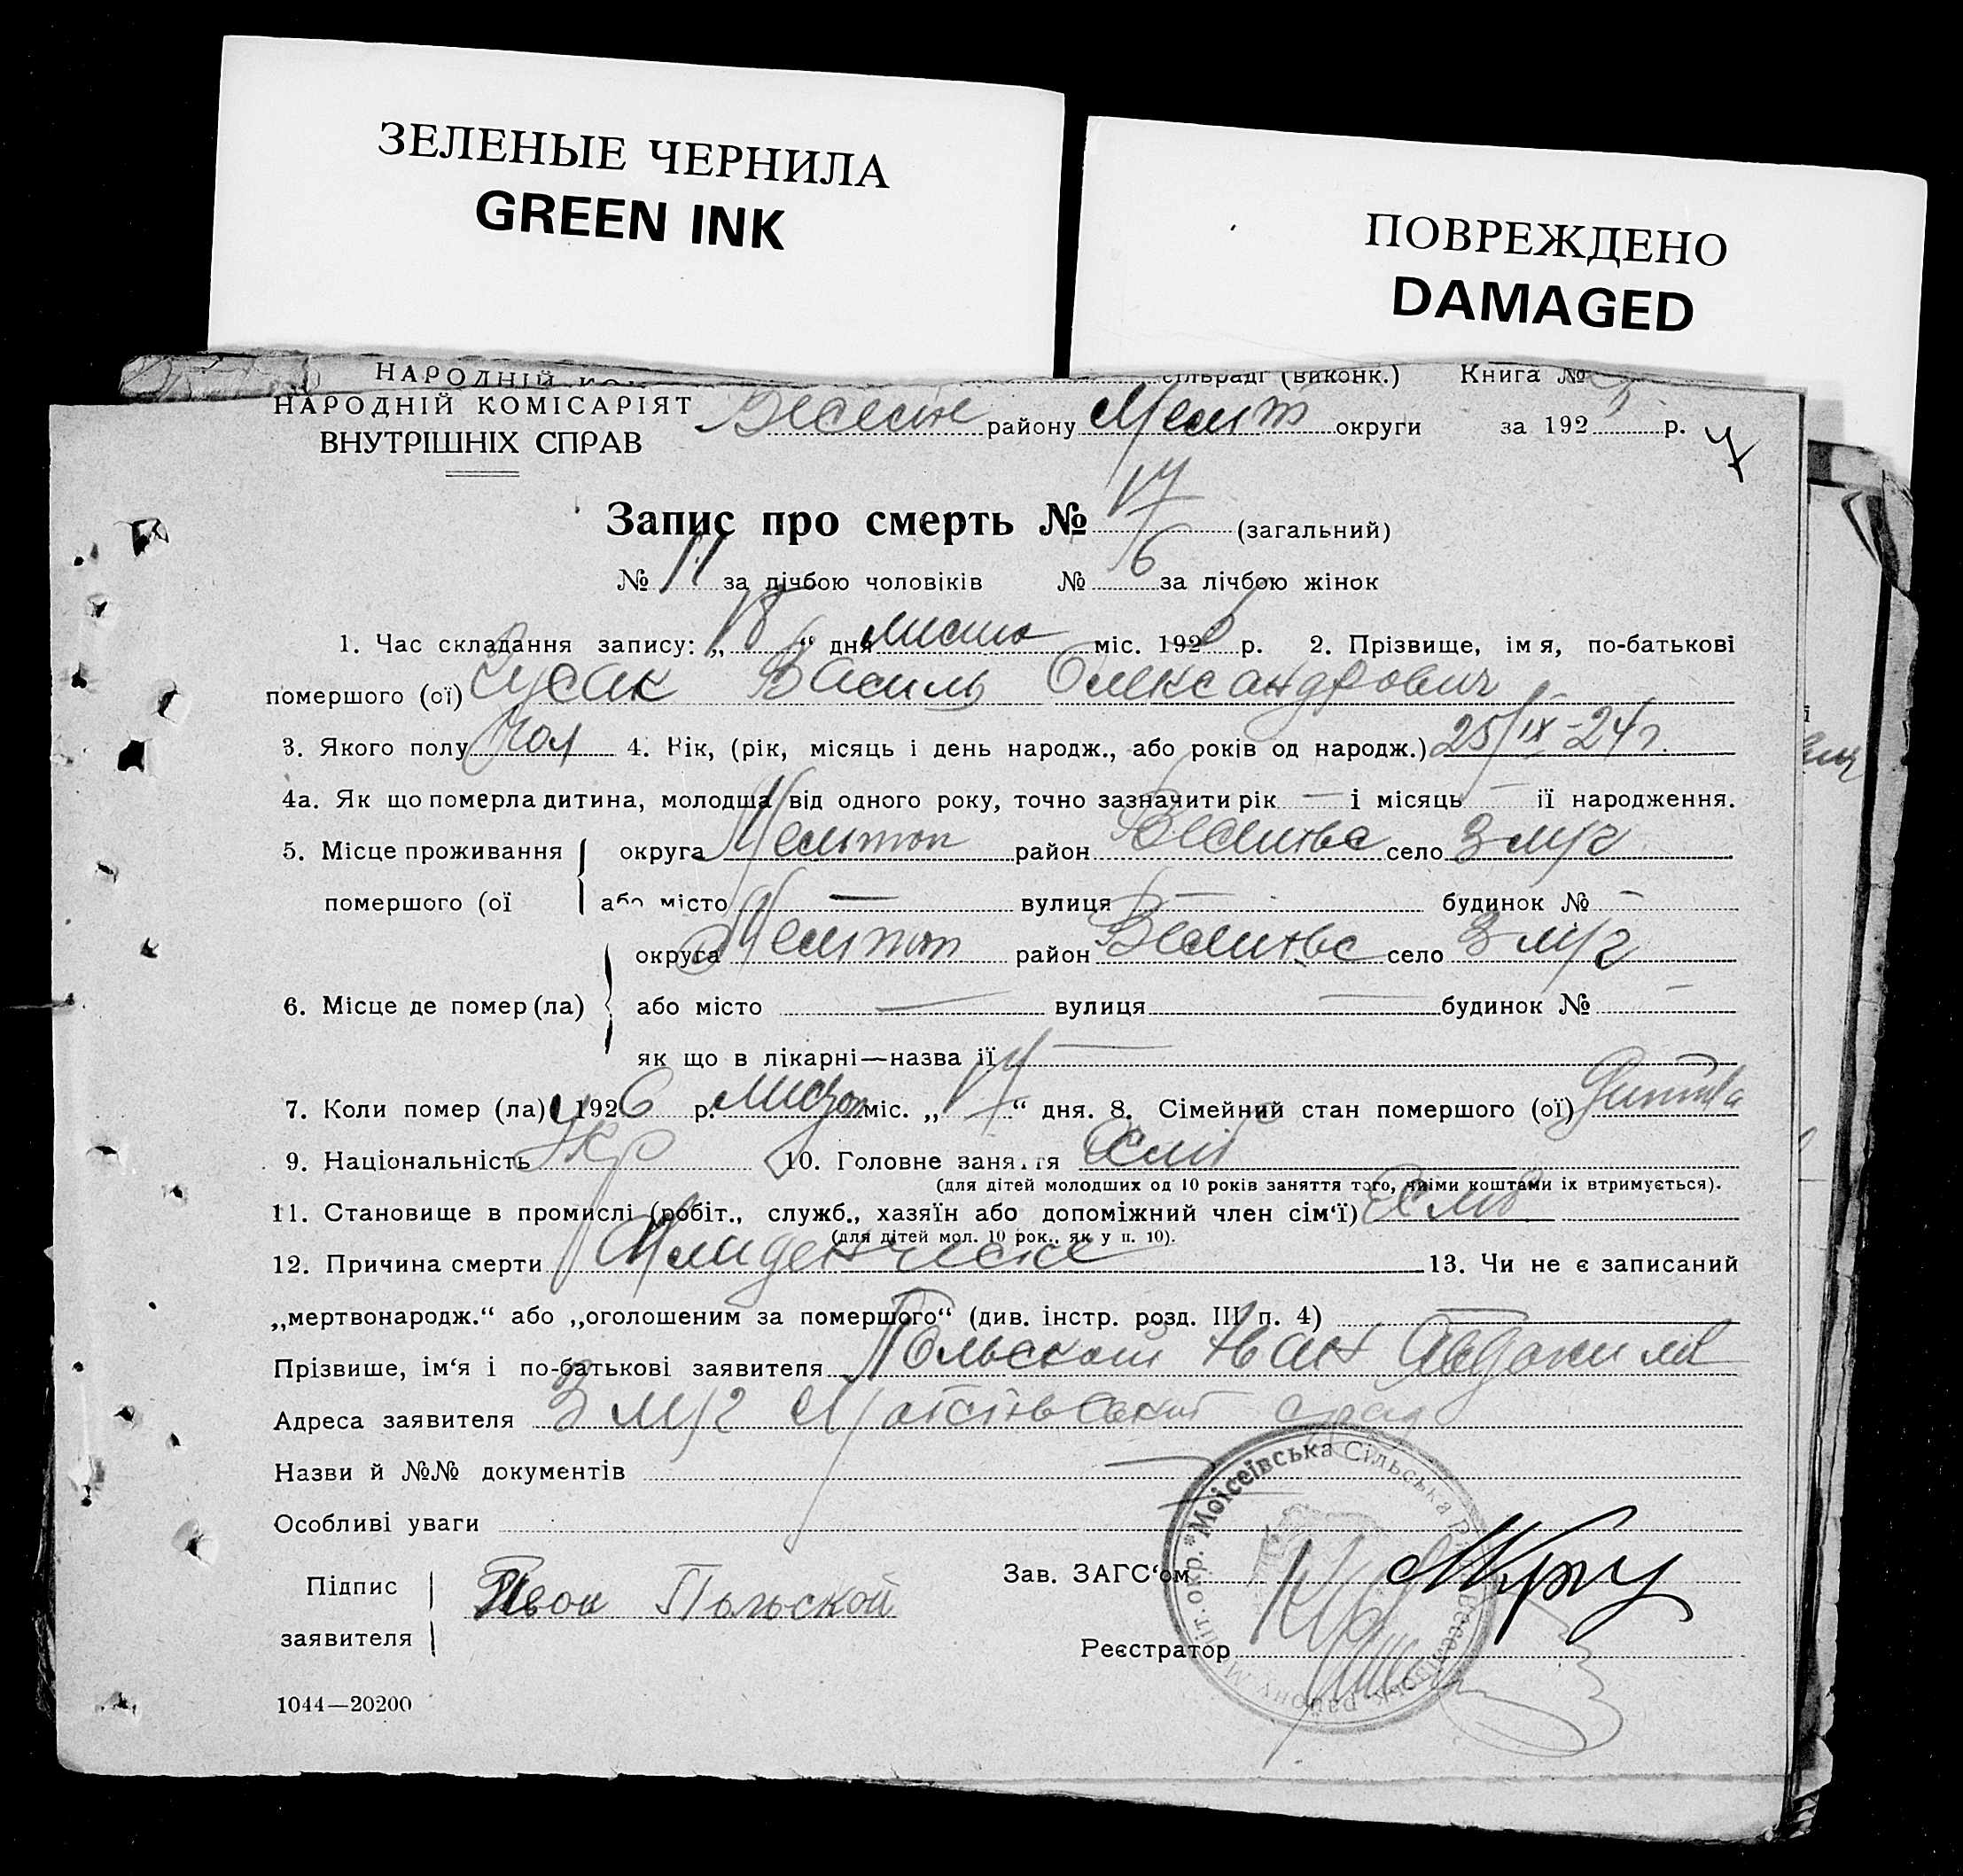 ЗЕЛЕНЫЕ ЧЕРНИЛА
GREEN INK
ПОВРЕЖДЕНО
DAMAGED
НАРОДНІЙ
сільраді (виконк.) Книга №
НАРОДНІЙ КОМІСАРІЯТ
ВНУТРІШНІХ СПРАВ
району Меліт округи за 192 р.
Запис про смерть № 17 (загальний)
№ 11 за лічбою чоловіків № 6 за лічбою жінок
1. Час складання запису: „18“ дня листо міс. 192 р. 2. Прізвище, ім я, по-батькові
помершого (ої) Василь Олександрович
3. Якого полу Чол 4. Вік, (рік, місяць і день народж., або років од народж.) 25/IX-24 г.
4а. Як що померла дитина, молодша від одного року, точно зазначити рік — і місяць — її народження.
5. Місце проживання округа Мелітоп район село
помершого (ої або місто — вулиця — будинок № —
округа Мелітоп район село
6. Місце де помер (ла) або місто — вулиця — будинок № —
як що в лікарні—назва її —
7. Коли помер (ла) 1926 р. міс. „17“ дня. 8. Сімейний стан помершого (ої) Дитина
9. Національність Укр 10. Головне заняття
(для дітей молодших од 10 років заняття того, чиїми коштами їх втримується).
11. Становище в промислі (робіт., служб., хазяїн або допоміжний член сім‘ї)
(для дітей мол. 10 рок., як у п. 10).
12. Причина смерти Младенческе 13. Чи не є записаний
„мертвонародж.“ або „оголошеним за помершого“ (див. інстр. розд. III п. 4) —
Прізвище, ім‘я і по-батькові заявителя Польской Иван
Адреса заявителя
Назви й №№ документів —
Особливі уваги
Підпис
заявителя
Иван Польской
Зав. ЗАГС‘ом
Реєстратор
Моісеівська Сільська
1044—20200